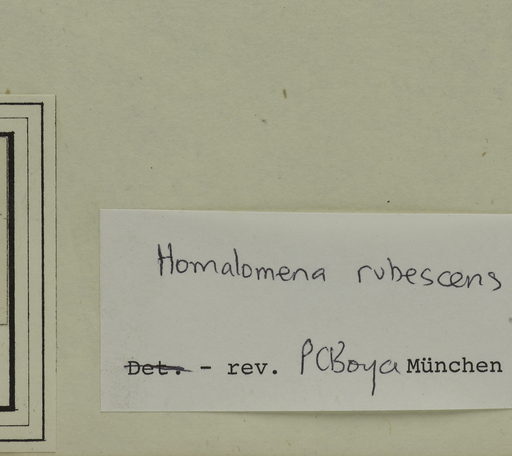 Homalomena rubescens
Det. - rev. PCBoya München